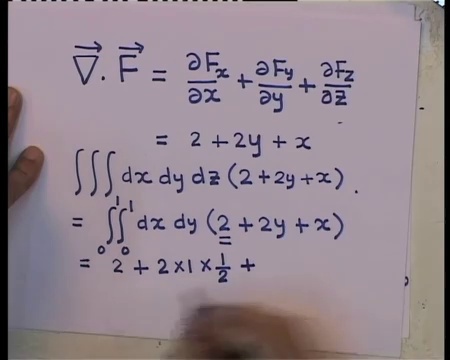 ∇⃗ . F⃗ = ∂Fx/∂x + ∂Fy/∂y + ∂Fz/∂z
= 2 + 2y + x
∫∫∫ dx dy dz (2 + 2y + x) .
= ∫₀¹ ∫₀¹ dx dy (2 + 2y + x)
= 2 + 2 × 1 × 1/2 +